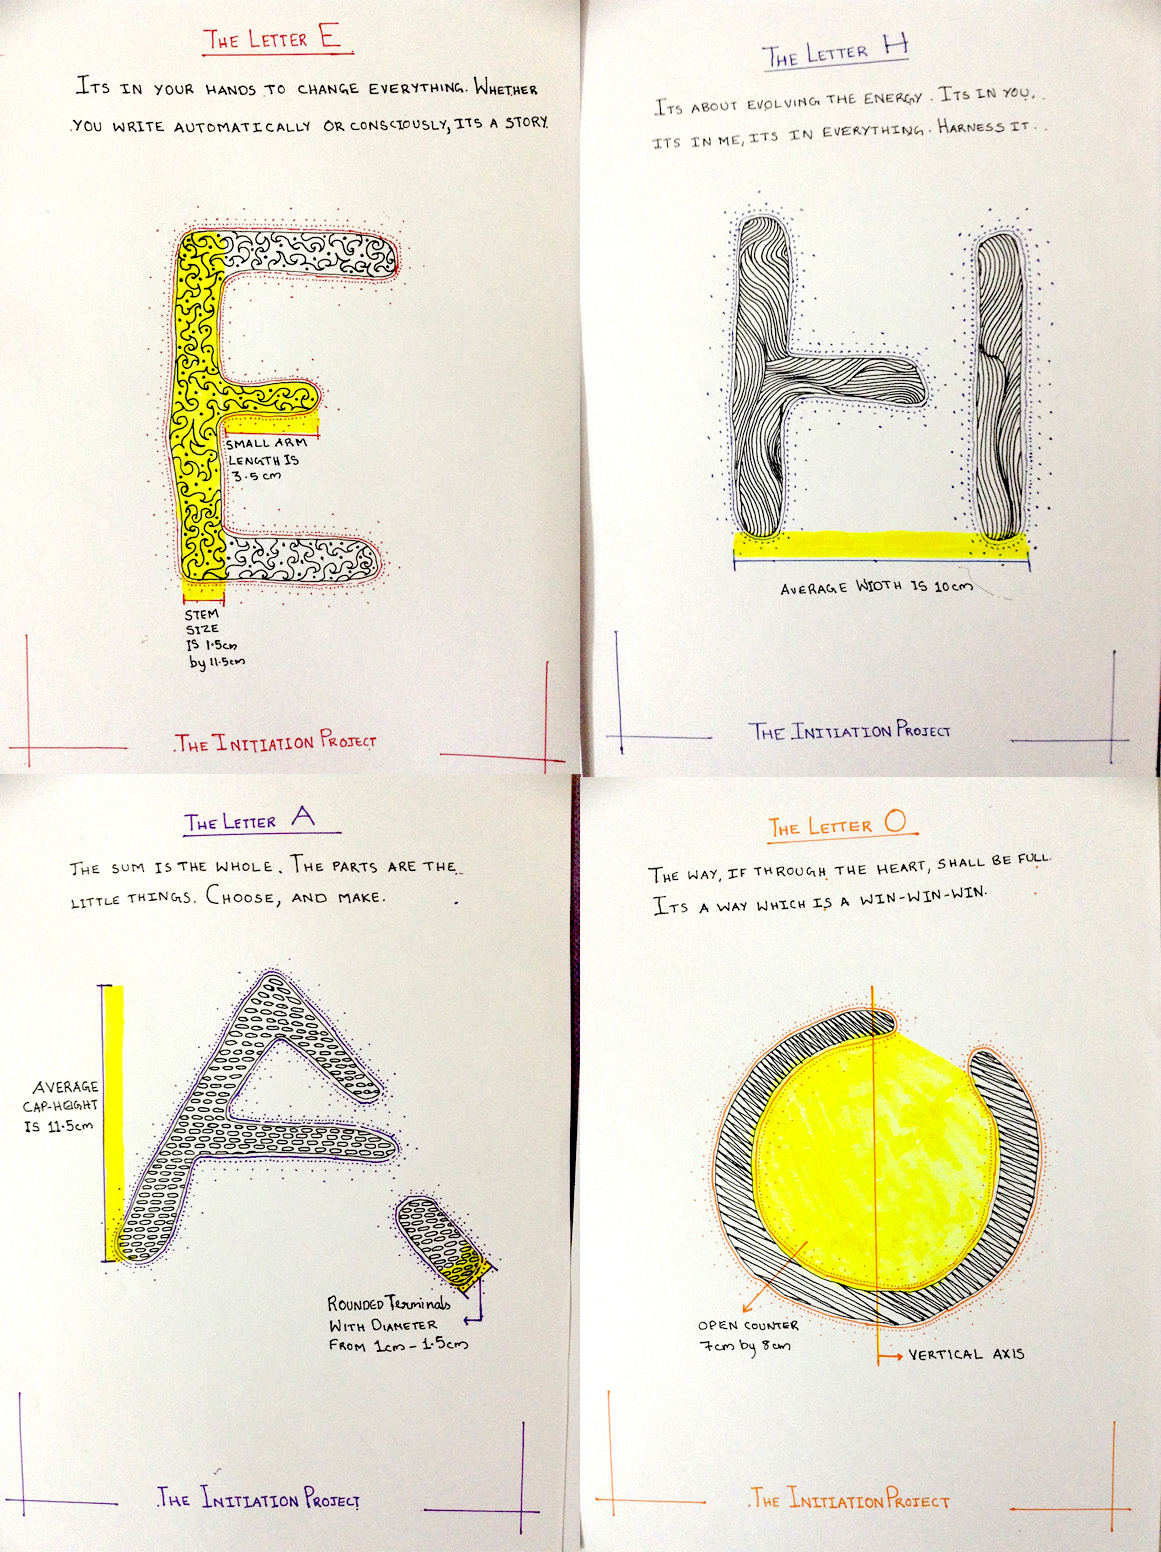 THE LETTER E
ITS IN YOUR HANDS TO CHANGE EVERYTHING. WHETHER
YOU WRITE AUTOMATICALLY OR CONSCIOUSLY, ITS A STORY.
SMALL ARM
LENGTH IS
3.5 cm
STEM
SIZE
IS 1.5cm
by 11.5cm
THE INITIATION PROJECT
THE LETTER H
ITS ABOUT EVOLVING THE ENERGY. ITS IN YOU,
ITS IN ME, ITS IN EVERYTHING. HARNESS IT..
AVERAGE WIDTH IS 10cm
THE INITIATION PROJECT
THE LETTER A
THE SUM IS THE WHOLE. THE PARTS ARE THE
LITTLE THINGS. CHOOSE, AND MAKE.
AVERAGE
CAP-HEIGHT
IS 11.5cm
ROUNDED Terminals
WITH DIAMETER
FROM 1cm - 1.5cm
THE INITIATION PROJECT
THE LETTER O
THE WAY, IF THROUGH THE HEART, SHALL BE FULL.
ITS A WAY WHICH IS A WIN-WIN-WIN.
OPEN COUNTER
7cm by 8cm
VERTICAL AXIS
THE INITIATION PROJECT